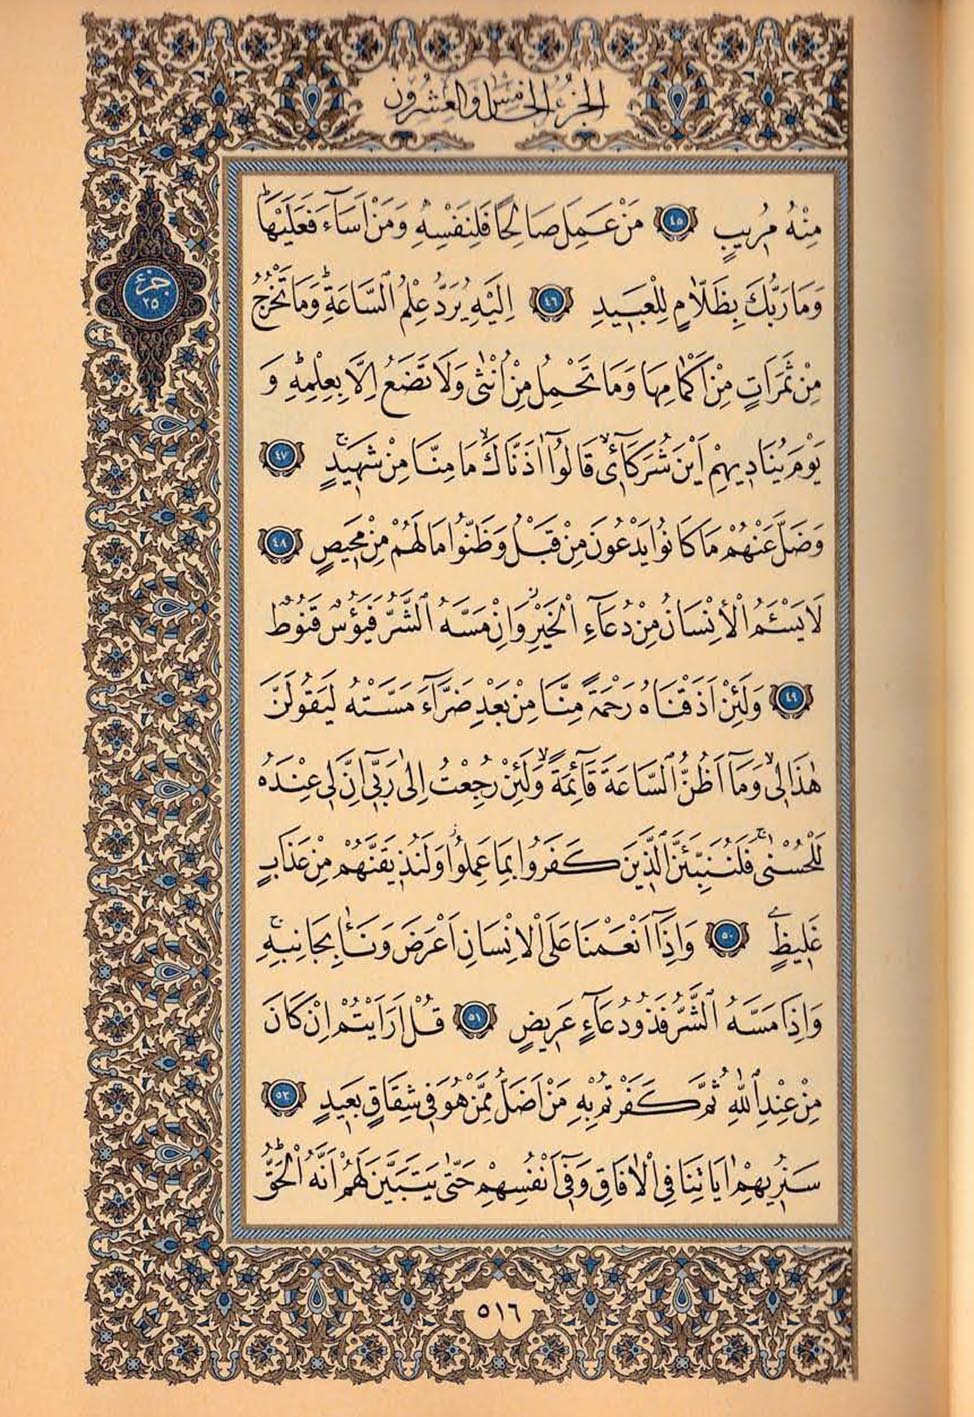 الجزء الخامس والعشرون
جزء
٢٥
مِنْهُ مُر۪يبٍ ﴿٤٥﴾ مَنْ عَمِلَ صَالِحًا فَلِنَفْسِه۪ وَمَنْ اَسَٓاءَ فَعَلَيْهَاۜ
وَمَا رَبُّكَ بِظَلَّامٍ لِلْعَب۪يدِ ﴿٤٦﴾ اِلَيْهِ يُرَدُّ عِلْمُ السَّاعَةِۜ وَمَا تَخْرُجُ
مِنْ ثَمَرَاتٍ مِنْ اَكْمَامِهَا وَمَا تَحْمِلُ مِنْ اُنْثٰى وَلَا تَضَعُ اِلَّا بِعِلْمِه۪ۜ وَ
يَوْمَ يُنَاد۪يهِمْ اَيْنَ شُرَكَٓاء۪يۙ قَالُٓوا اٰذَنَّاكَۙ مَا مِنَّا مِنْ شَه۪يدٍۚ ﴿٤٧﴾
وَضَلَّ عَنْهُمْ مَا كَانُوا يَدْعُونَ مِنْ قَبْلُ وَظَنُّوا مَا لَهُمْ مِنْ مَح۪يصٍ ﴿٤٨﴾
لَا يَسْـَٔمُ الْاِنْسَانُ مِنْ دُعَٓاءِ الْخَيْرِۘ وَاِنْ مَسَّهُ الشَّرُّ فَيَؤُ۫سٌ قَنُوطٌ
﴿٤٩﴾ وَلَئِنْ اَذَقْنَاهُ رَحْمَةً مِنَّا مِنْ بَعْدِ ضَرَّٓاءَ مَسَّتْهُ لَيَقُولَنَّ
هٰذَا ل۪يۙ وَمَٓا اَظُنُّ السَّاعَةَ قَٓائِمَةًۙ وَلَئِنْ رُجِعْتُ اِلٰى رَبّ۪ٓي اِنَّ ل۪ي عِنْدَهُ
لَلْحُسْنٰىۚ فَلَنُنَبِّئَنَّ الَّذ۪ينَ كَفَرُوا بِمَا عَمِلُواۘ وَلَنُذ۪يقَنَّهُمْ مِنْ عَذَابٍ
غَل۪يظٍ ﴿٥٠﴾ وَاِذَٓا اَنْعَمْنَا عَلَى الْاِنْسَانِ اَعْرَضَ وَنَاٰ بِجَانِبِه۪ۚ
وَاِذَا مَسَّهُ الشَّرُّ فَذُو دُعَٓاءٍ عَر۪يضٍ ﴿٥١﴾ قُلْ اَرَاَيْتُمْ اِنْ كَانَ
مِنْ عِنْدِ اللّٰهِ ثُمَّ كَفَرْتُمْ بِه۪ مَنْ اَضَلُّ مِمَّنْ هُوَ ف۪ي شِقَاقٍ بَع۪يدٍ ﴿٥٢﴾
سَنُر۪يهِمْ اٰيَاتِنَا فِي الْاٰفَاقِ وَف۪ٓي اَنْفُسِهِمْ حَتّٰى يَتَبَيَّنَ لَهُمْ اَنَّهُ الْحَقُّۜ
٥١٦